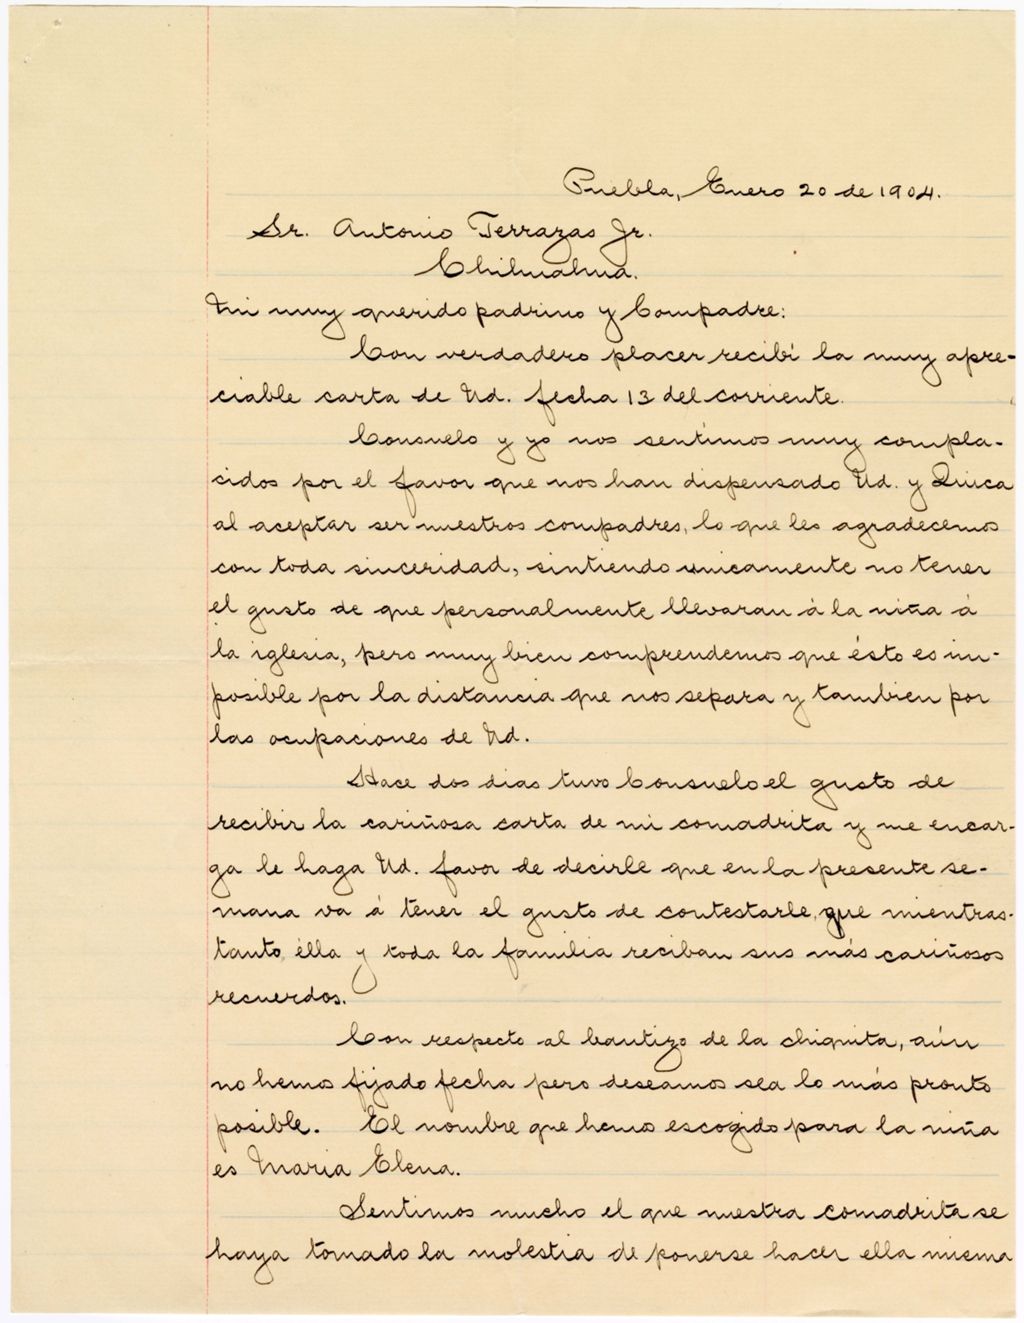 Puebla, Enero 20 de 1904.
Sr. Antonio Terrazas Jr.
Chihuahua.
Mi muy querido padrino y Compadre:
Con verdadero placer recibí la muy apre-
ciable carta de Ud. fecha 13 del corriente.
Consuelo y yo nos sentimos muy compla-
cidos por el favor que nos han dispensado Ud. y Quica
al aceptar ser nuestros compadres, lo que les agradecemos
con toda sinceridad, sintiendo unicamente no tener
el gusto de que personalmente llevaran á la niña á
la iglesia, pero muy bien comprendemos que ésto es im-
posible por la distancia que nos separa y tambien por
las ocupaciones de Ud.
Hace dos dias tuvo Consuelo el gusto de
recibir la cariñosa carta de mi comadrita y me encar-
ga le haga Ud. favor de decirle que en la presente se-
mana va á tener el gusto de contestarle, que mientras-
tanto, élla y toda la familia reciban sus más cariñosos
recuerdos.
Con respecto al bautizo de la chiquita, aún
no hemos fijado fecha pero deseamos sea lo más pronto
posible. El nombre que hemos escogido para la niña
es Maria Elena.
Sentimos mucho el que nuestra comadrita se
haya tomado la molestia de ponerse hacer ella misma